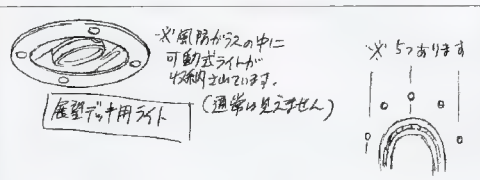 ※風防ガラスの中に
可動式ライトが
収納されています。
(通常は見えません)
展望デッキ用ライト
※5つあります